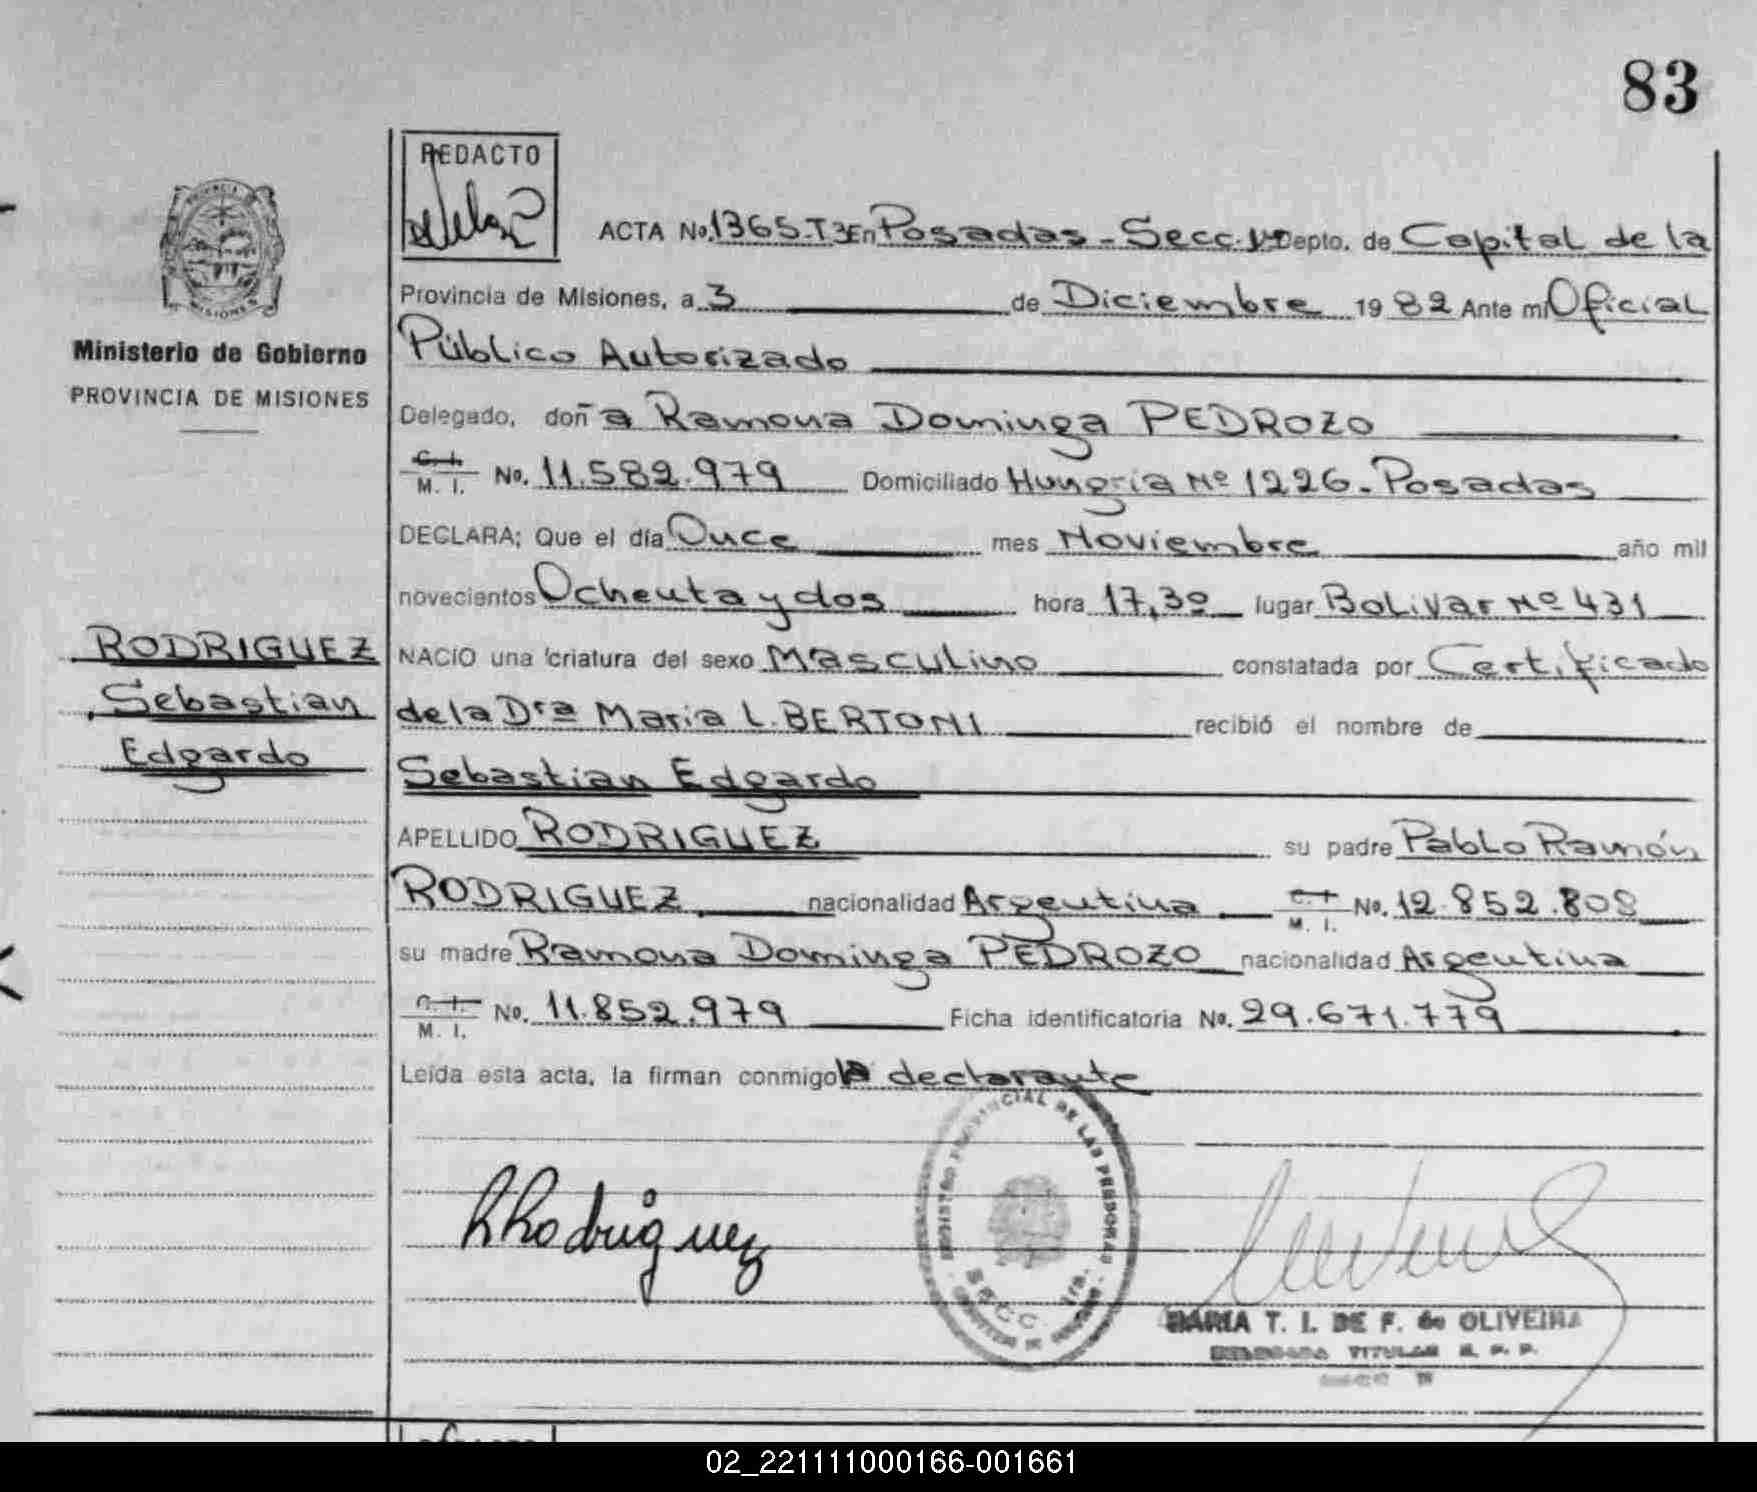 83
REDACTO
ACTA No. 1365.T3 En Posadas - Secc. 1ª Depto. de Capital de la
Provincia de Misiones, a 3 de Diciembre 1982 Ante mi Oficial
Ministerio de Gobierno
PROVINCIA DE MISIONES
Público Autorizado
Delegado, doña Ramona Dominga PEDROZO
C. I. M. I. No. 11.582.979 Domiciliado Hungria Nº 1226 - Posadas
DECLARA; Que el día Once mes Noviembre año mil
novecientos Ochenta y dos hora 17,30 lugar Bolivar Nº 431
RODRIGUEZ
Sebastian
Edgardo
NACIO una criatura del sexo Masculino constatada por Certificado
de la Drª Maria L. BERTONI recibió el nombre de
Sebastian Edgardo
APELLIDO RODRIGUEZ su padre Pablo Ramón
RODRIGUEZ nacionalidad Argentina C. I. M. I. No. 12.852.808
su madre Ramona Dominga PEDROZO nacionalidad Argentina
C. I. M. I. No. 11.852.979 Ficha identificatoria No. 29.671.779
Leída esta acta, la firman conmigo la declarante
REGISTRO PROVINCIAL DE LAS PERSONAS
SECC. 1ra.
RRodriguez
MARIA T. I. DE F. de OLIVEIRA
DELEGADA TITULAR R. P. P.
02_221111000166-001661